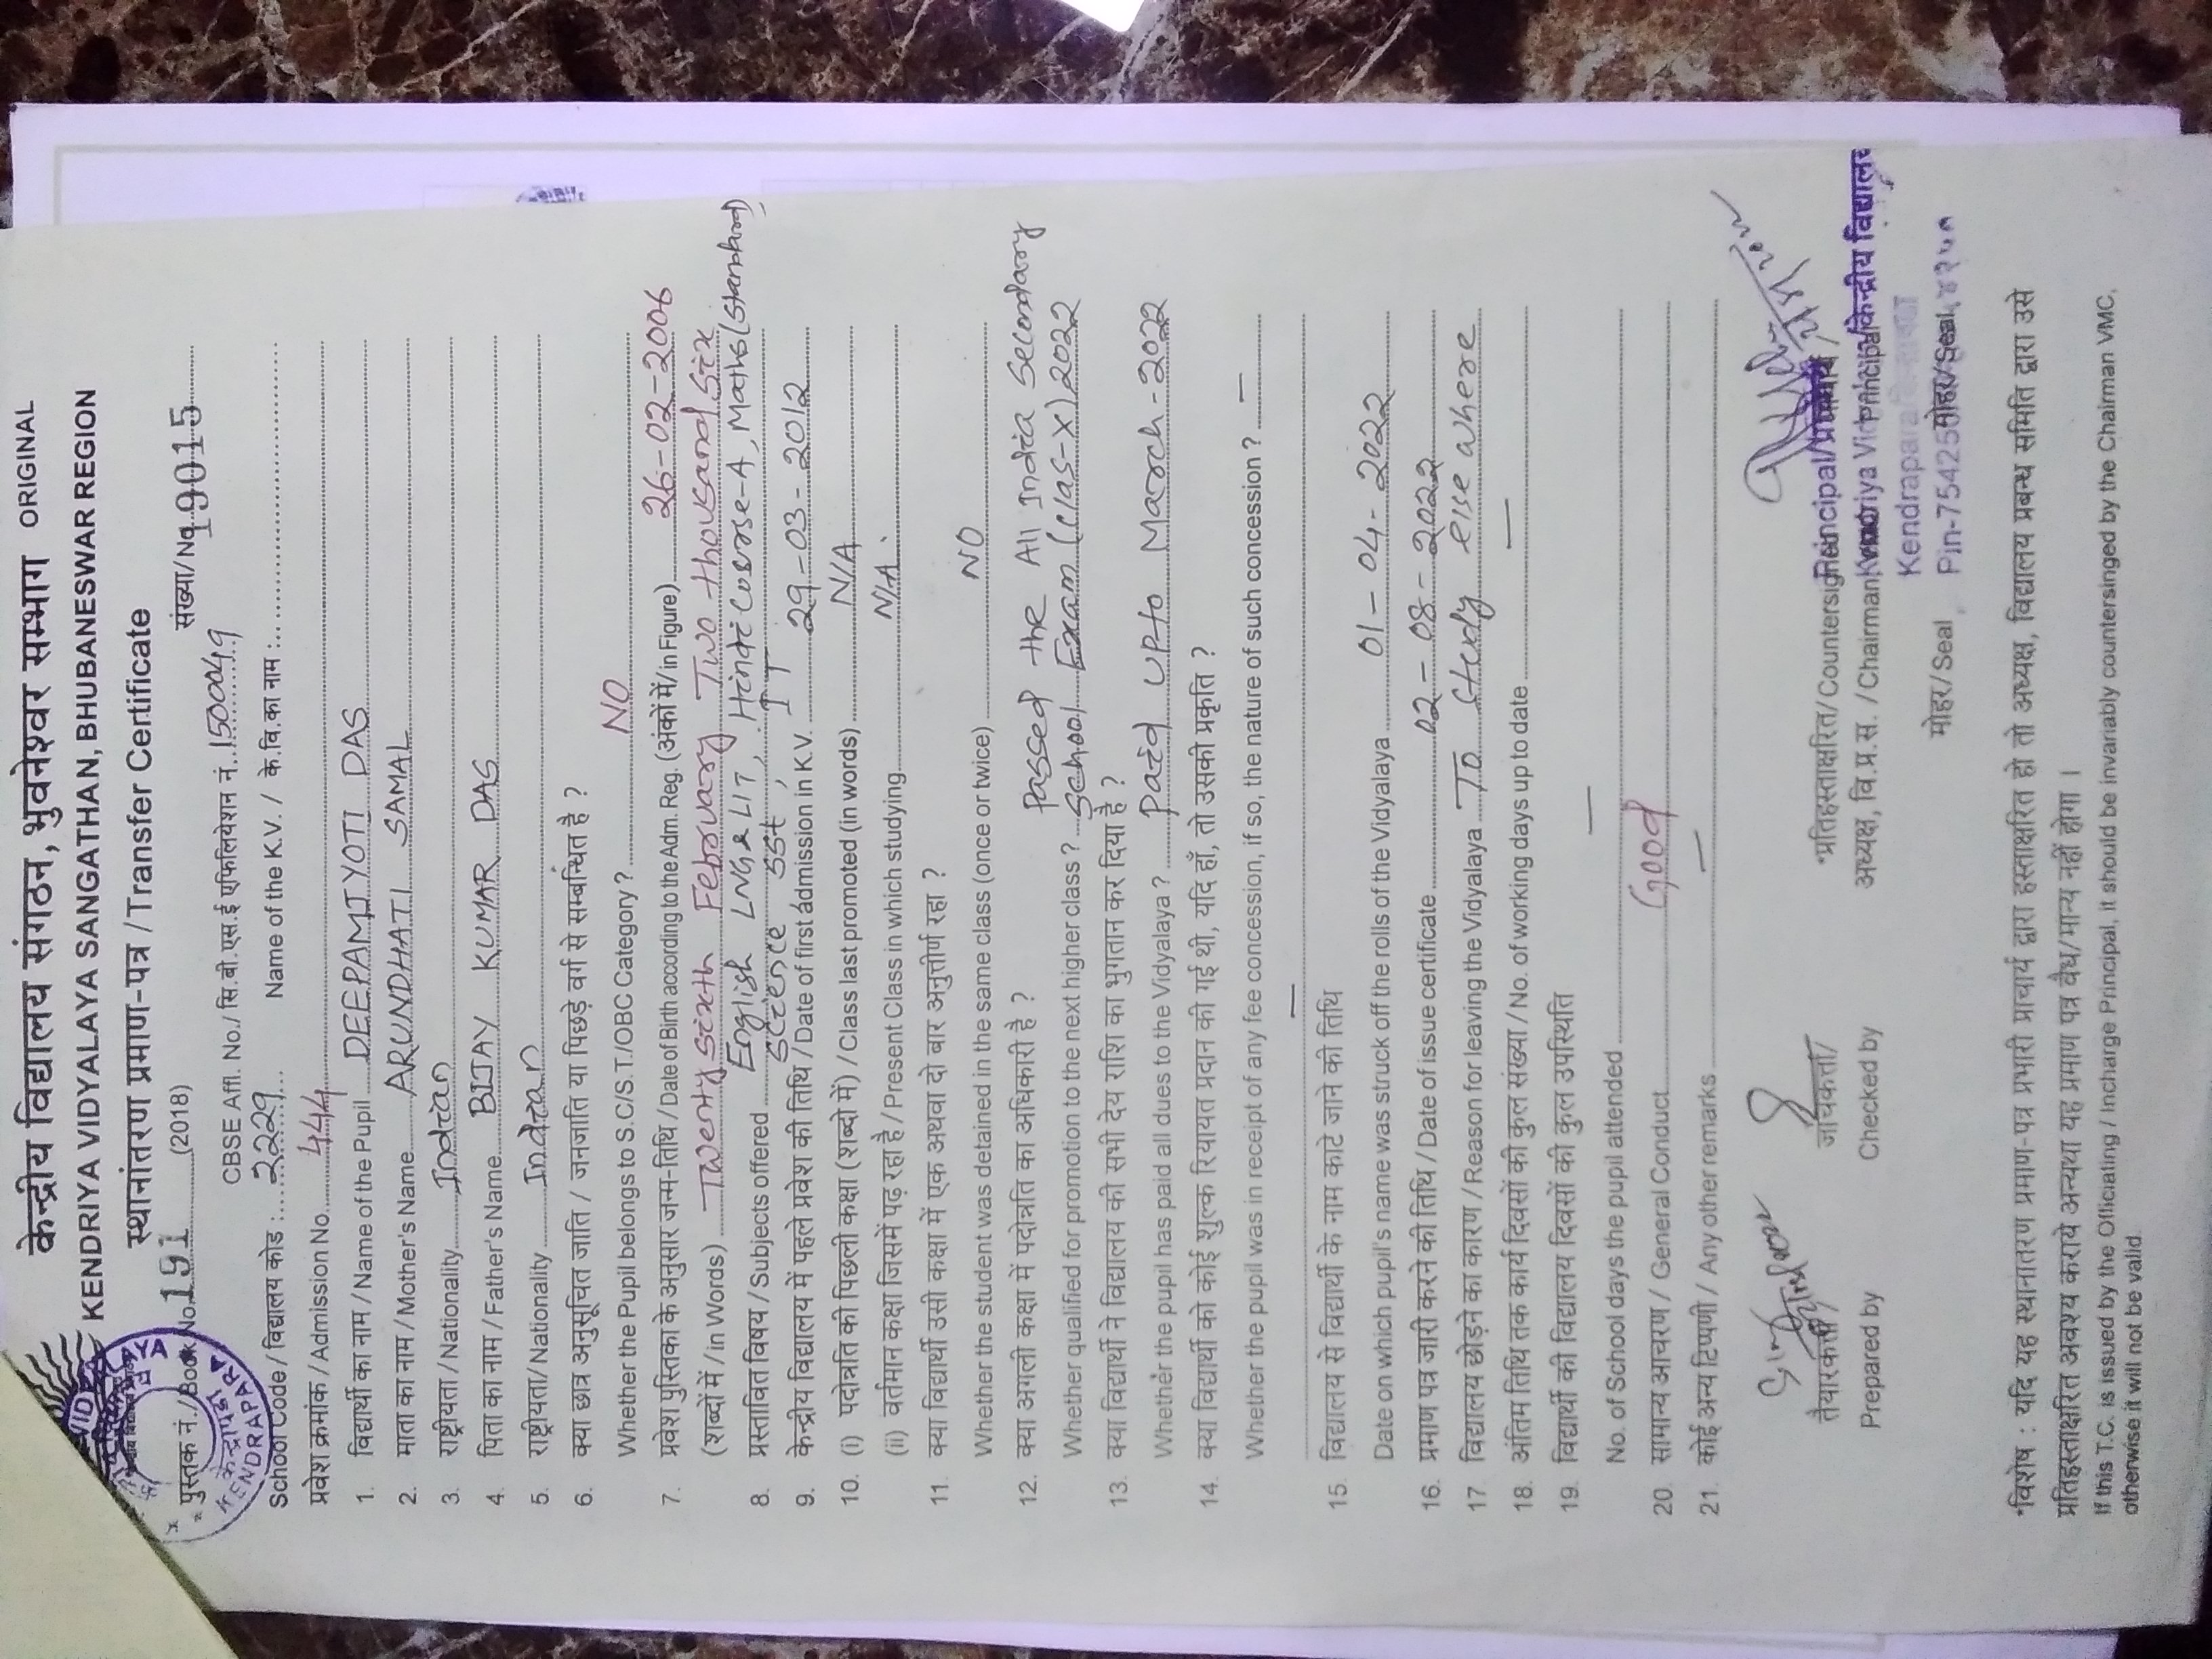 केन्द्रीय विद्यालय संगठन, भुवनेश्वर सम्भाग ORIGINAL
KENDRIYA VIDYALAYA SANGATHAN, BHUBANESWAR REGION
स्थानांतरण प्रमाण-पत्र / Transfer Certificate
पुस्तक नं./Book No. 191 (2018) संख्या/No. 19015
CBSE Affl. No./ सि.बी.एस.ई एफिलियेशन नं. 1500049
School Code / विद्यालय कोड : 2229 Name of the K.V. / के.वि.का नाम :
प्रवेश क्रमांक / Admission No. 444
1. विद्यार्थी का नाम / Name of the Pupil DEEPAMJYOTI DAS
2. माता का नाम / Mother's Name ARUNDHATI SAMAL
3. राष्ट्रीयता / Nationality Indian
4. पिता का नाम / Father's Name BIJAY KUMAR DAS
5. राष्ट्रीयता/ Nationality Indian
6. क्या छात्र अनुसूचित जाति / जनजाति या पिछड़े वर्ग से सम्बन्धित है ?
Whether the Pupil belongs to S.C/S.T./OBC Category? NO
7. प्रवेश पुस्तिका के अनुसार जन्म-तिथि / Date of Birth according to the Adm. Reg. (अंकों में/ in Figure) 26-02-2006
(शब्दों में / in Words) Twenty Sixth February Two thousand Six
8. प्रस्तावित विषय / Subjects offered English LNG & LIT, Hindi Course-A, Maths (Standard)
Science, SST, IT
9. केन्द्रीय विद्यालय में पहले प्रवेश की तिथि / Date of first admission in K.V. 29-03-2012
10. (i) पदोन्नति की पिछली कक्षा (शब्दो में) / Class last promoted (in words) N/A
(ii) वर्तमान कक्षा जिसमें पढ़ रहा है / Present Class in which studying N/A.
11. क्या विद्यार्थी उसी कक्षा में एक अथवा दो बार अनुत्तीर्ण रहा ?
Whether the student was detained in the same class (once or twice) NO
12. क्या अगली कक्षा में पदोन्नति का अधिकारी है ? Passed the All India Secondary
Whether qualified for promotion to the next higher class ? School Exam (Clas-X) 2022
13. क्या विद्यार्थी ने विद्यालय की सभी देय राशि का भुगतान कर दिया है ?
Whether the pupil has paid all dues to the Vidyalaya ? Paid upto March-2022
14. क्या विद्यार्थी को कोई शुल्क रियायत प्रदान की गई थी, यदि हाँ, तो उसकी प्रकृति ?
Whether the pupil was in receipt of any fee concession, if so, the nature of such concession ? —
—
15. विद्यालय से विद्यार्थी के नाम काटे जाने की तिथि
Date on which pupil's name was struck off the rolls of the Vidyalaya 01-04-2022
16. प्रमाण पत्र जारी करने की तिथि / Date of issue certificate 02-08-2022
17. विद्यालय छोड़ने का कारण / Reason for leaving the Vidyalaya To Study else where
18. अंतिम तिथि तक कार्य दिवसों की कुल संख्या / No. of working days up to date —
19. विद्यार्थी की विद्यालय दिवसों की कुल उपस्थिति —
No. of School days the pupil attended
20. सामान्य आचरण / General Conduct Good
21. कोई अन्य टिप्पणी / Any other remarks —
तैयारकर्ता/ जांचकर्त्ता/ *प्रतिहस्ताक्षरित/ Countersigned Principal/प्राचार्य
Prepared by Checked by अध्यक्ष, वि.प्र.स. / Chairman Kendriya Vidyalaya/केन्द्रीय विद्यालय
Kendrapara
मोहर/ Seal Pin-754250 मोहर/Seal
*विशेष : यदि यह स्थानातरण प्रमाण-पत्र प्रभारी प्राचार्य द्वारा हस्ताक्षरित हो तो अध्यक्ष, विद्यालय प्रबन्ध समिति द्वारा उसे
प्रतिहस्ताक्षरित अवश्य कराये अन्यथा यह प्रमाण पत्र वैध/मान्य नहीं होगा ।
If this T.C. is issued by the Officiating / Incharge Principal, it should be invariably countersinged by the Chairman VMC,
otherwise it will not be valid